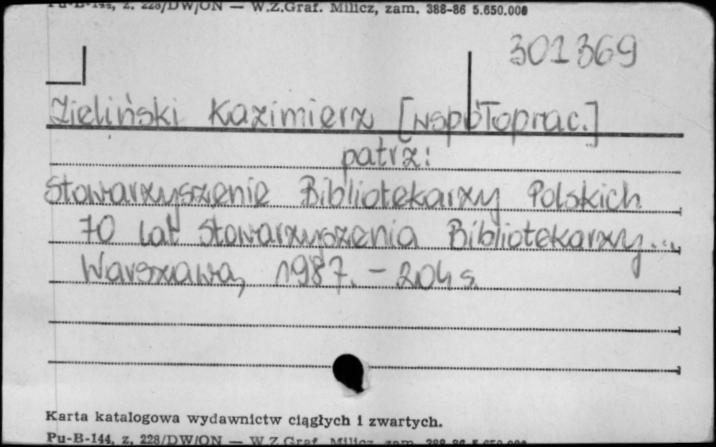 Pu-B-144, z. 228/DW/ON — W.Z.Graf. Milicz, zam. 388-86 5.650.000
301369
Zieliński Kazimierz [współoprac.]
patrz:
Stowarzyszenie Bibliotekarzy Polskich
70 lat Stowarzyszenia Bibliotekarzy...
Warszawa, 1987. - 204 s.
Karta katalogowa wydawnictw ciągłych i zwartych.
Pu-B-144, z. 228/DW/ON — W.Z.Graf. Milicz, zam. 388-86 5.650.000